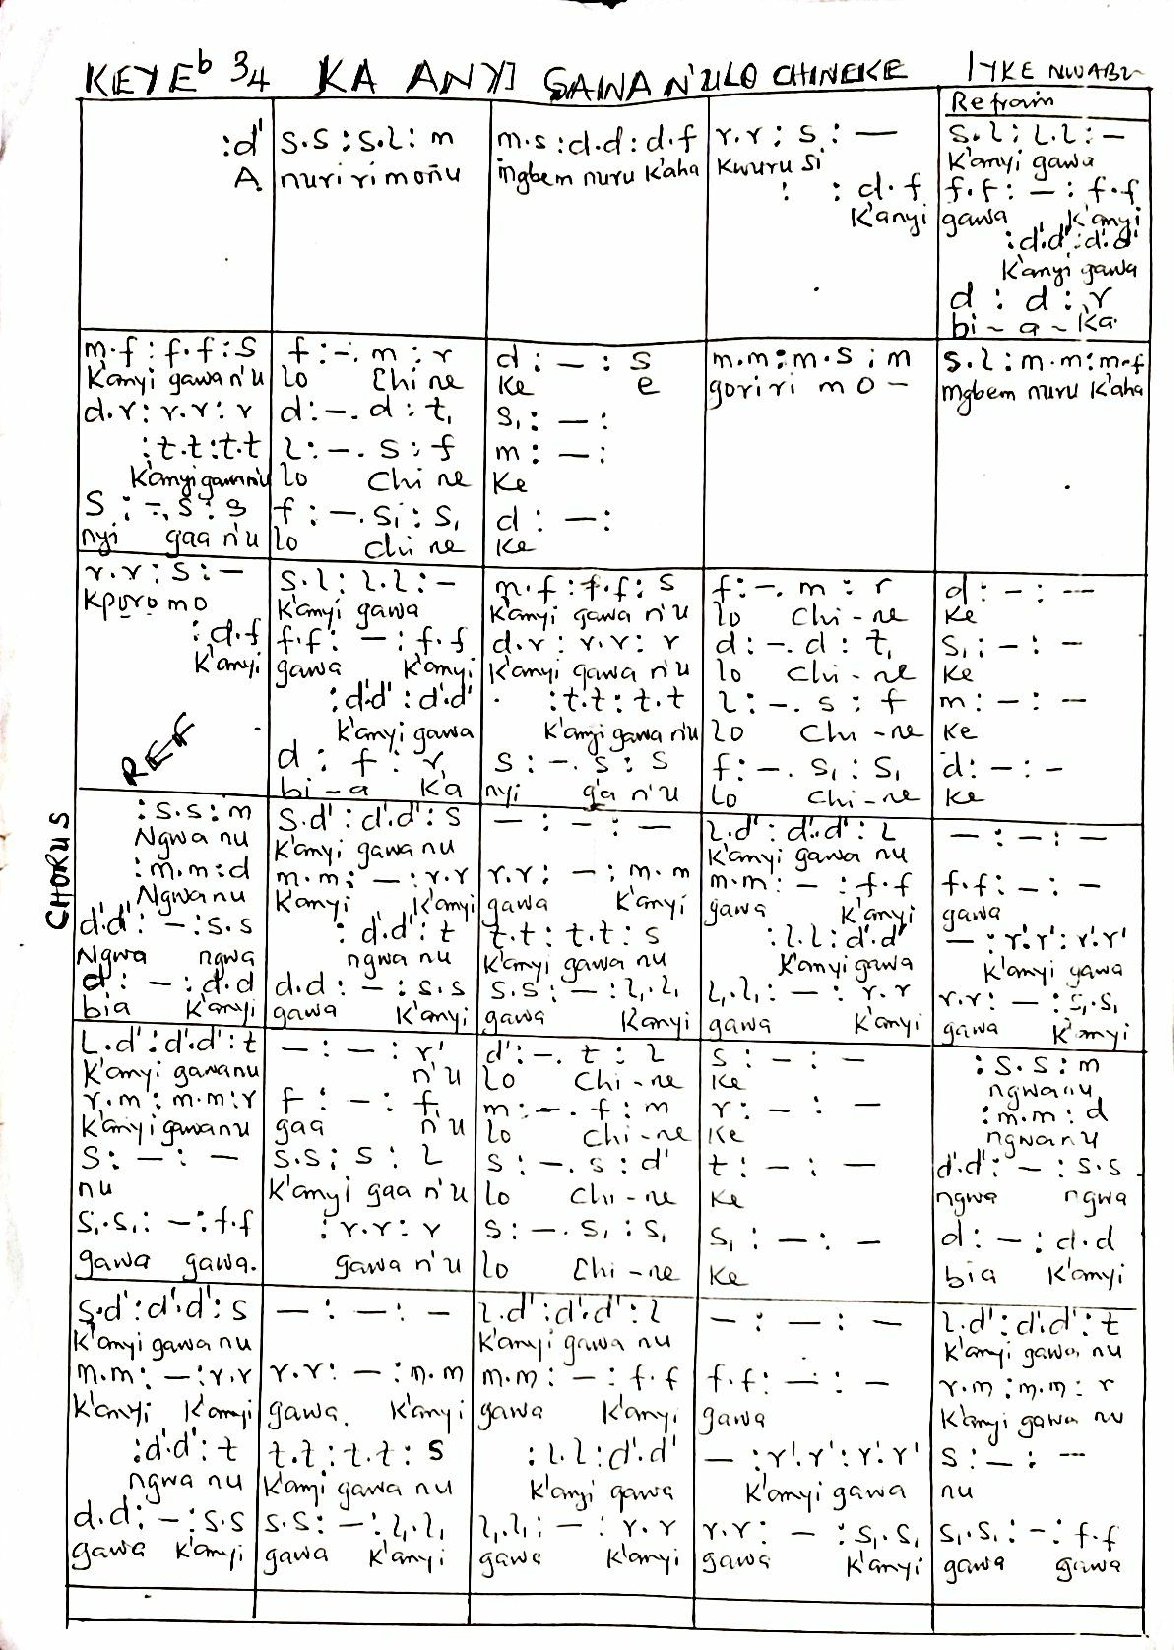 KEY E♭ 3/4 KA ANYI GAWA N'ULO CHINEKE IYKE NWABU
:d'
A
s.s : s.l : m
nuri rimoñu
m.s : d.d : d.f
mgbem nuru K'aha
r.r : s : —
Kwuru si
: : d.f
K'anyi
Refrain
s.l : l.l : —
K'anyi gawa
f.f : — : f.f
gawa K'anyi
: d'.d' : d'.d'
K'anyi gawa
d : d : r
bi – a – Ka
m.f : f.f : s
K'anyi gawa n'u
d.r : r.r : r
: t.t : t.t
K'anyi gawa n'u
s : –. s : s
nyi gaa n'u
f : –. m : r
lo Chi ne
d : –. d : t,
l : –. s : f
lo Chi ne
f : –. s, : s,
lo chi ne
d : — : s
Ke e
s, : — :
m : — :
Ke
d : — :
Ke
m.m : m.s : m
goriri mo –
s.l : m.m : m.f
Mgbem nuru K'aha
r.r : s : –
Kpụrọ mo
: d.f
K'anyi
REF
s.l : l.l : –
K'anyi gawa
f.f : – : f.f
gawa K'anyi
: d'.d' : d'.d'
K'anyi gawa
d : f : r
bi – a K'a
m.f : f.f : s
K'anyi gawa n'u
d.r : r.r : r
K'anyi gawa n'u
: t.t : t.t
K'anyi gawa n'u
s : –. s : s
nyi ga n'u
f : –. m : r
lo Chi – ne
d : –. d : t,
lo chi – ne
l : –. s : f
lo Chi – ne
f : –. s, : s,
lo chi – ne
d : – : –
Ke
s, : – : –
Ke
m : – : –
Ke
d : – : –
Ke
CHORUS
: s.s : m
Ngwa nu
: m.m : d
Ngwa nu
d'.d' : – : s.s
Ngwa ngwa
d : – : d.d
bia K'anyi
s.d' : d'.d' : s
K'anyi gawa nu
m.m : – : r.r
K'anyi K'anyi
: d'.d' : t
ngwa nu
d.d : – : s.s
gawa K'anyi
– : – : –
r.r : – : m.m
gawa K'anyi
t.t : t.t : s
K'anyi gawa nu
s.s : – : l,.l,
gawa K'anyi
l.d' : d'.d' : l
K'anyi gawa nu
m.m : – : f.f
gawa K'anyi
: l.l : d'.d'
K'anyi gawa
l,.l, : – : r.r
gawa K'anyi
– : – : –
f.f : – : –
gawa
– : r'.r' : r'.r'
K'anyi gawa
r.r : – : s,.s,
gawa K'anyi
l.d' : d'.d' : t
K'anyi gawanu
r.m : m.m : r
K'anyi gawanu
s : – : –
nu
s,.s, : – : f.f
gawa gawa.
– : – : r'
n'u
f : – : f
gaa n'u
s.s : s : l
K'anyi gaa n'u
: r.r : r
gawa n'u
d' : –. t : l
lo Chi – ne
m : –. f : m
lo Chi – ne
s : –. s : d'
lo Chi – ne
s : –. s, : s,
lo Chi – ne
s : – : –
Ke
r : – : –
Ke
t : – : –
Ke
s, : – : –
Ke
: s.s : m
ngwanu
: m.m : d
ngwanu
d'.d' : – : s.s
ngwa ngwa
d : – : d.d
bia K'anyi
s.d' : d'.d' : s
K'anyi gawa nu
m.m : – : r.r
K'anyi K'anyi
: d'.d' : t
ngwa nu
d.d : – : s.s
gawa K'anyi
– : – : –
r.r : – : m.m
gawa. K'anyi
t.t : t.t : s
K'anyi gawa nu
s.s : – : l,.l,
gawa K'anyi
l.d' : d'.d' : l
K'anyi gawa nu
m.m : – : f.f
gawa K'anyi
: l.l : d'.d'
K'anyi gawa
l,.l, : – : r.r
gawa K'anyi
– : – : –
f.f : – : –
gawa
– : r'.r' : r'.r'
K'anyi gawa
r.r : – : s,.s,
gawa K'anyi
l.d' : d'.d' : t
K'anyi gawa nu
r.m : m.m : r
K'anyi gawa nu
s : – : –
nu
s,.s, : – : f.f
gawa gawa